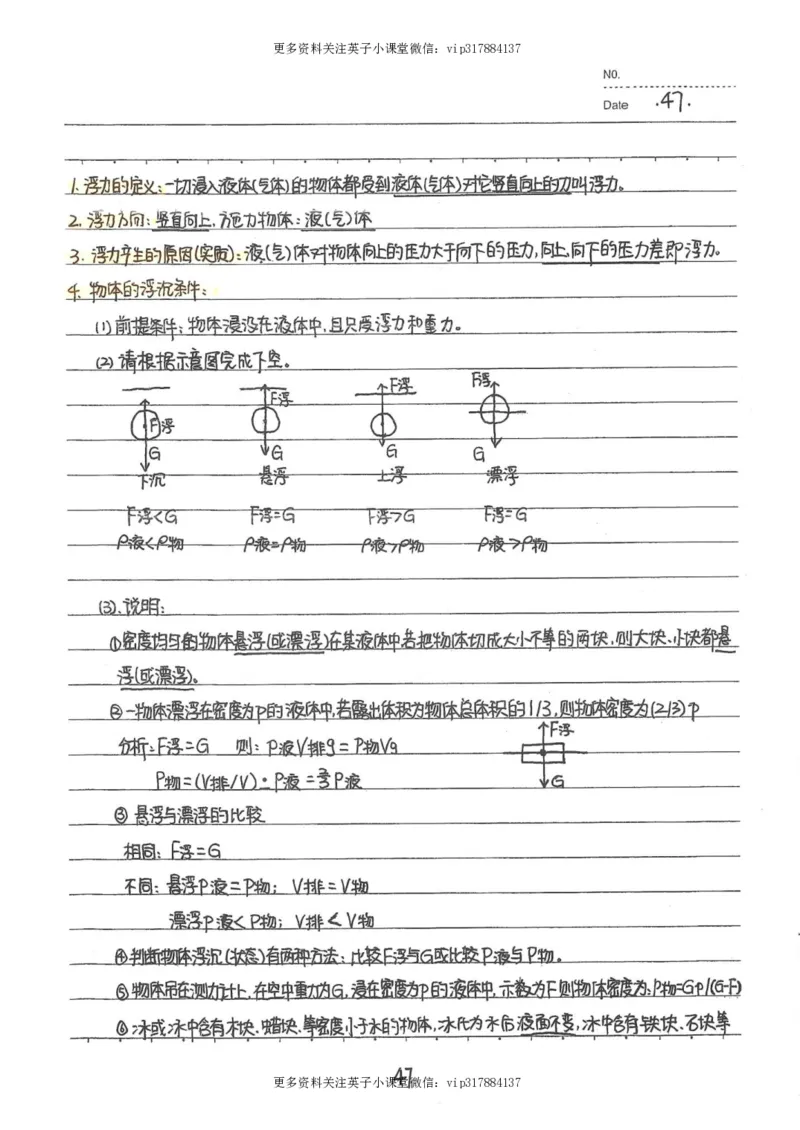 更多资料关注英子小课堂微信：vip317884137
NO.
Date .47.
1.浮力的定义:一切浸入液体(气体)的物体都受到液体(气体)对它竖直向上的力叫浮力。
2.浮力方向:竖直向上,施力物体:液(气)体
3.浮力产生的原因(实质):液(气)体对物体向上的压力大于向下的压力,向上、向下的压力差即浮力。
4.物体的浮沉条件:
(1)前提条件:物体浸没在液体中,且只受浮力和重力。
(2)请根据示意图完成下空。
F浮 F浮 F浮 F浮
G G G G
下沉 悬浮 上浮 漂浮
F浮<G F浮=G F浮>G F浮=G
ρ液<ρ物 ρ液=ρ物 ρ液>ρ物 ρ液>ρ物
(3)、说明:
①密度均匀的物体悬浮(或漂浮)在某液体中若把物体切成大小不等的两块,则大块、小块都悬
浮(或漂浮)。
②一物体漂浮在密度为ρ的液体中,若露出体积为物体总体积的1/3,则物体密度为(2/3)ρ
F浮
分析:F浮=G 则:ρ液V排g=ρ物Vg
ρ物=(V排/V)·ρ液=⅔ρ液
G
③悬浮与漂浮的比较
相同:F浮=G
不同:悬浮ρ液=ρ物; V排=V物
漂浮ρ液<ρ物; V排<V物
④判断物体浮沉(状态)有两种方法:比较F浮与G或比较ρ液与ρ物。
⑤物体吊在测力计上,在空中重力为G,浸在密度为ρ的液体中,示数为F则物体密度为:ρ物=Gρ/(G-F)
⑥冰或冰中含有木块、蜡块、等密度小于水的物体,冰化为水后液面不变,冰中含有铁块、石块等
47
更多资料关注英子小课堂微信：vip317884137